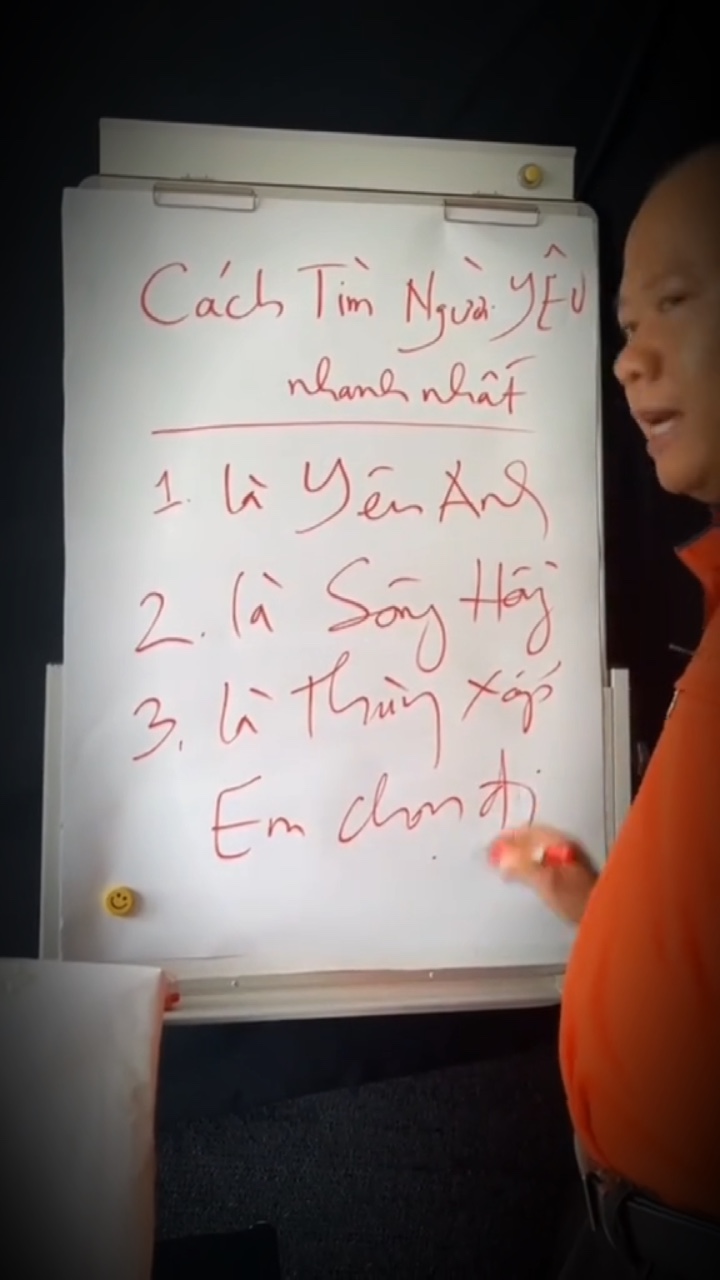 Cách Tìm Người YÊU
nhanh nhất
1. là Yên Anh
2. là Sông Hồng
3. là thùng xốp
Em chọn đi